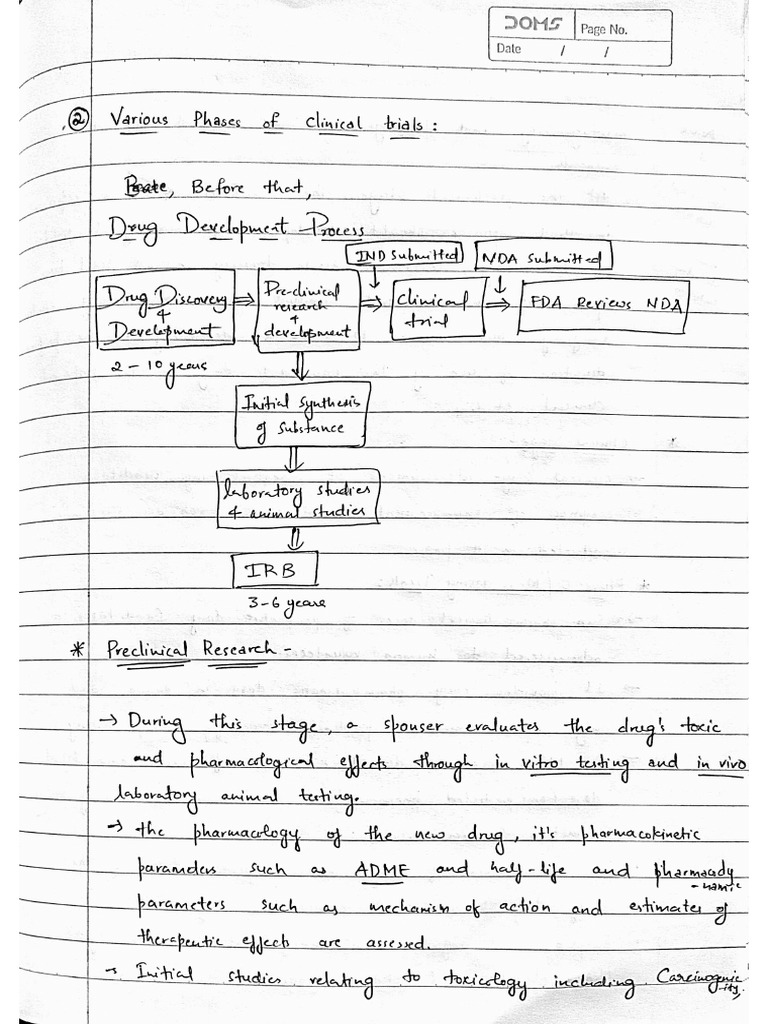 DOMS
Page No.
Date / /
② Various Phases of clinical trials :
Before that,
Drug Development Process
IND submitted
NDA submitted
Drug Discovery & Development
Pre-clinical research & development
Clinical trial
FDA Reviews NDA
2 - 10 years
Initial synthesis
of substance
laboratory studies
& animal studies
IRB
3-6 years
* Preclinical Research -
→ During this stage, a spouser evaluates the drug's toxic
and pharmacological effects through in vitro testing and in vivo
laboratory animal testing.
→ the pharmacology of the new drug, it's pharmacokinetic
parameters such as ADME and half-life and pharmacody
-namic
parameters such as mechanism of action and estimates of
therapeutic effects are assessed.
→ Initial studies relating to toxicology including Carcinogenic
ity,